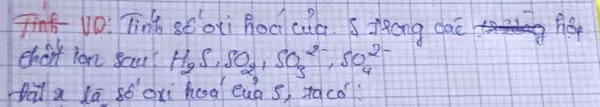 VD: Tính số oxi hoá của S trong các hợp
chất ion sau: H₂S, SO₂, SO₃²⁻, SO₄²⁻
Đặt x là số oxi hoá của S, ta có: